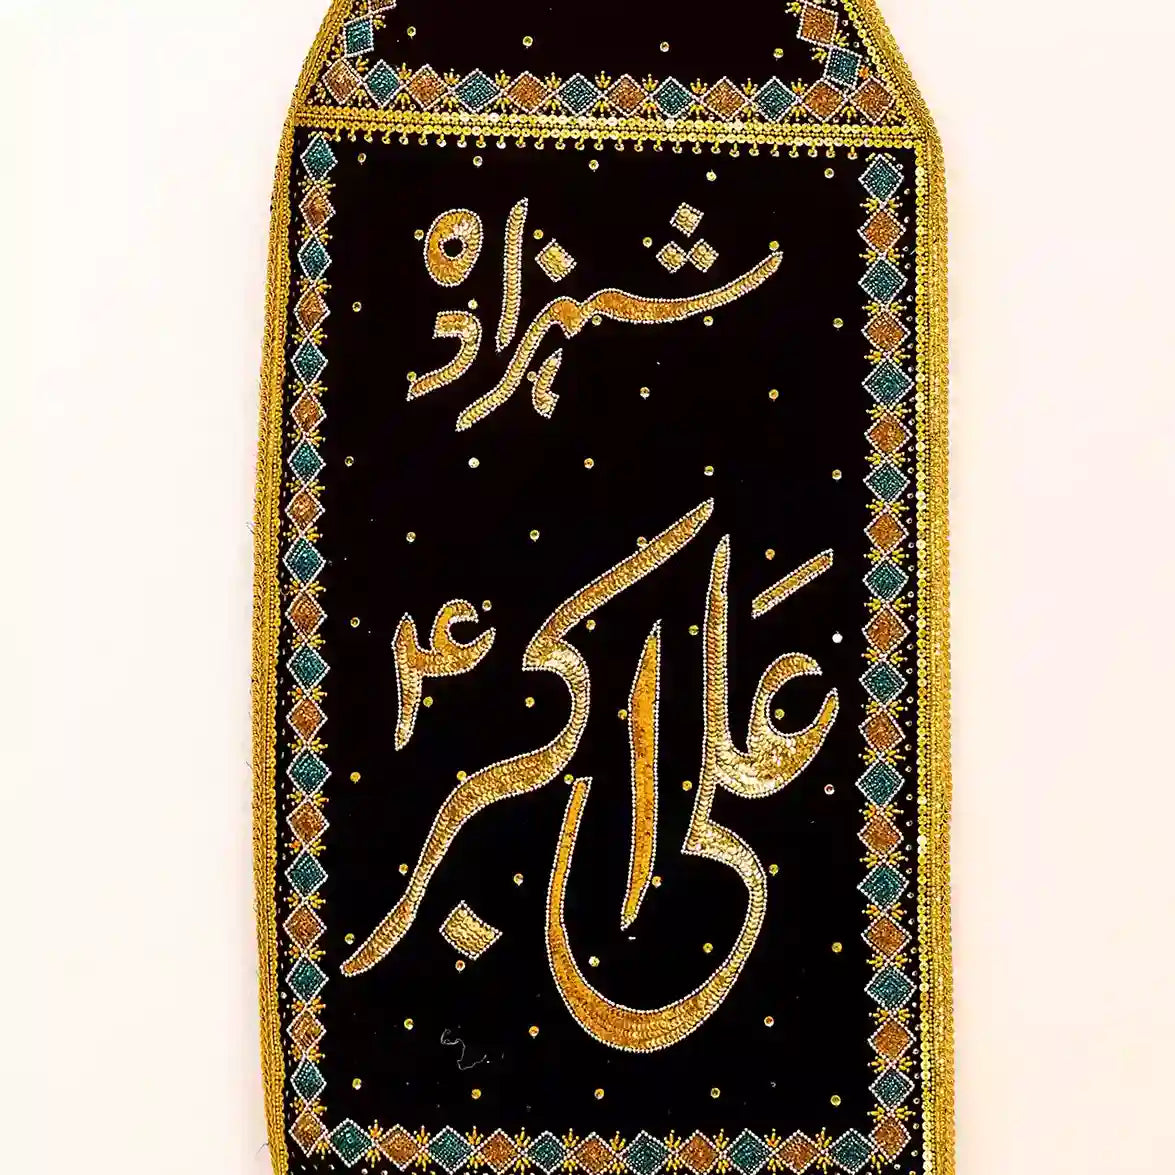 شهزاده
علی اکبر ع